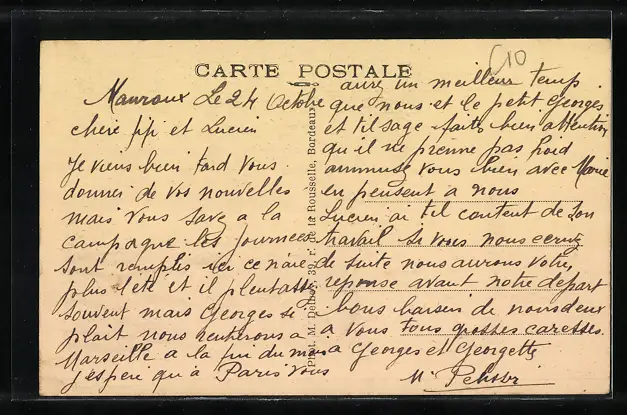 CARTE POSTALE
Mauroux Le 24 Octobre
chere fifi et Lucien
Je viens bien tard vous
donner de vos nouvelles
mais vous save a la
campagne les journees
sont remplis ici ce n'aie
plus l'été et il pleut assez
souvent mais Georges se
plait nous rentrerons a
Marseille a la fin du mois
j'espere qu'a Paris vous
aurez un meilleur temp
que nous et le petit Georges
et til sage faits bien attention
qu il ne prenne pas froid
ammusez vous bien avec Marie
en pensent a nous
Lucien ai til content de son
travail si vous nous ecrivez
de suite nous aurons votre
reponse avant notre depart
bons baisers de nous deux
a vous tous grosses caresses
a Georges et Georgette
M
Phot. M. Delboy, 39, r. de la Rousselle, Bordeaux
C10